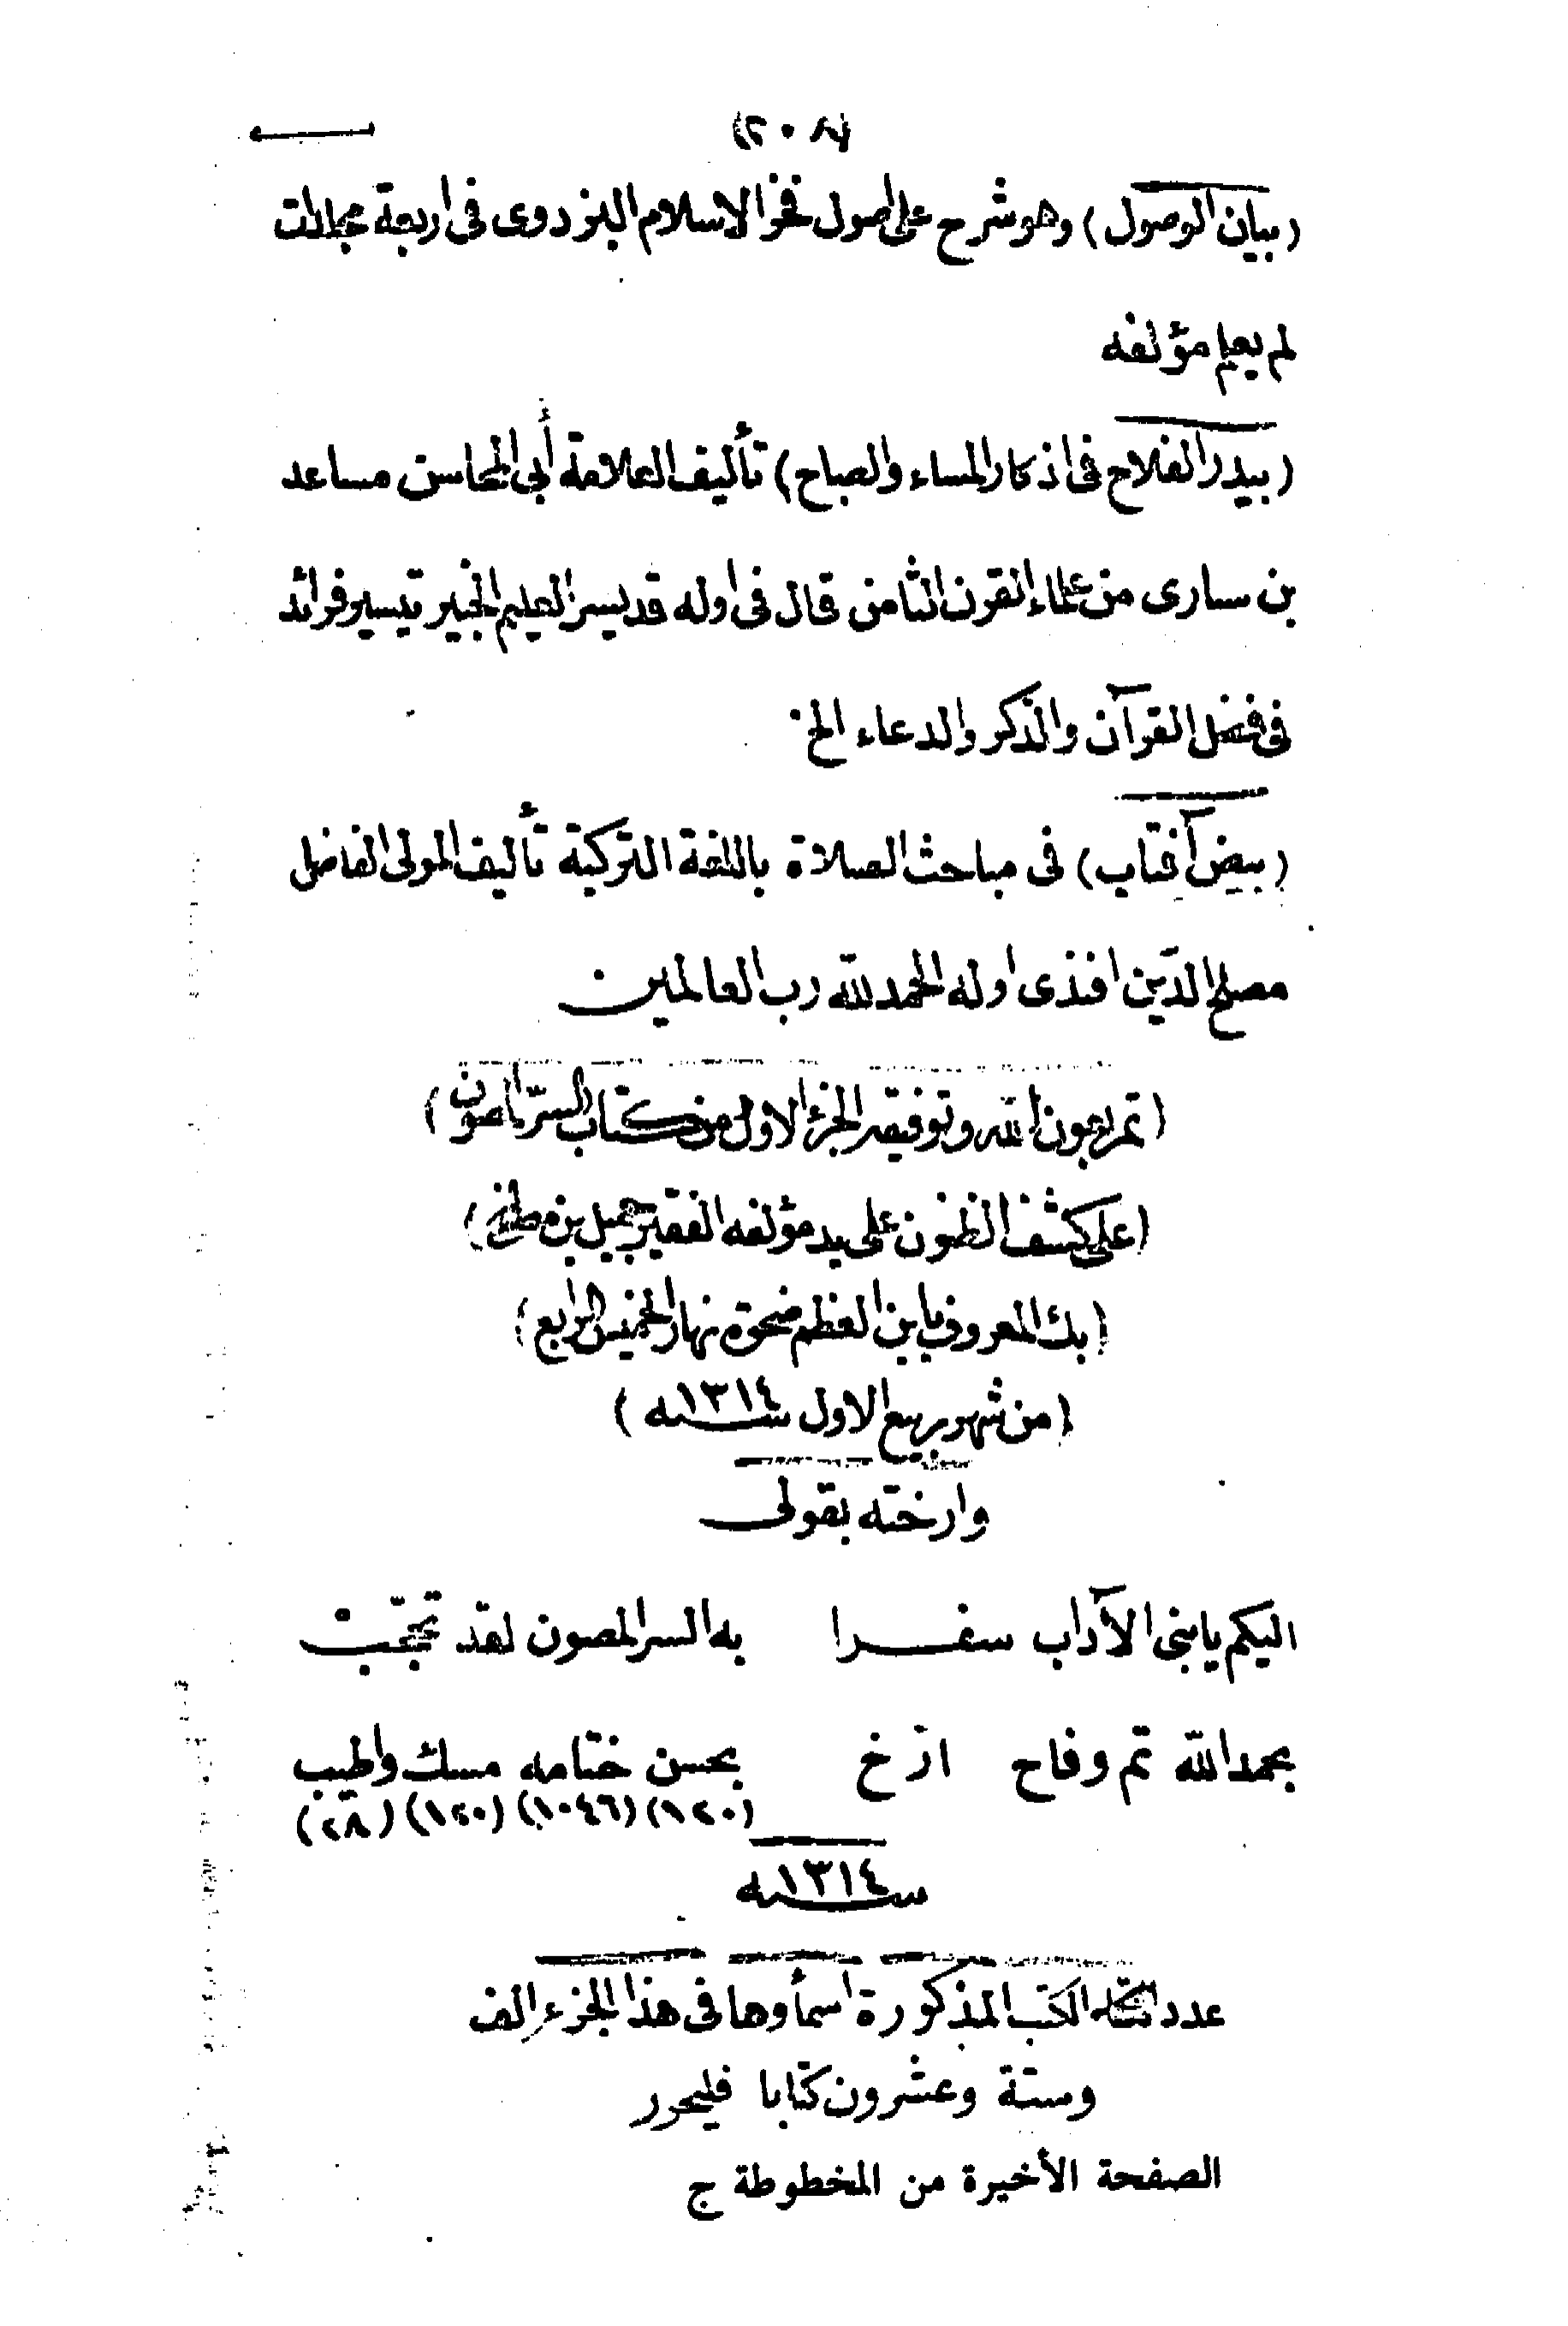 (٢٠٨)
(بيان الوصول) وهو شرح على اصول فخر الاسلام البزدوى فى اربعة مجلدات
لم يعلم مؤلفه
(بيدر الفلاح فى اذكار المساء والصباح) تأليف العلامة أبى المحاسن مساعد
بن سارى من علماء القرن الثامن قال فى اوله قد يسر العليم الخبير تيسير فرائد
فى فضل القرآن والذكر والدعاء الخ
(بيض آفتاب) فى مباحث الصلاة باللغة التركية تأليف المولى الفاضل
مصلح الدّين افندى اوله الحمد للّه رب العالمين
(تم بعون اللّه وتوفيقه الجزء الاول من كتاب السرّ المصون)
(على كشف الظنون على يد مؤلفه الفقير جميل بن مصطفى)
(بك المعروف بابن العظم ضحوة نهار الخميس الرابع)
(من شهر ربيع الاول سنه ١٣١٤)
وارخته بقولى
اليكم يا بنى الآداب سفرا به السر المصون لقد تحجّب
بحمد اللّه تم وفاح ارّخ بحسن ختامه مسك واطيب
(١٢٠) (١٠٤٦) (١٢٠) (٢٨)
سنه ١٣١٤
عدد الكتب المذكورة اسمأوها فى هذا الجزء الف
وستة وعشرون كتابا فليحرر
الصفحة الأخيرة من المخطوطة ج